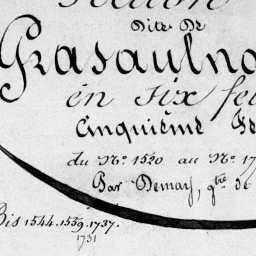 Dite De
Grasaulno
en six fe
Cinquième Fe
du N.º 1520 au N.º 17
Par Demay, g.tre de
Bis 1544. 1559. 1737.
1731